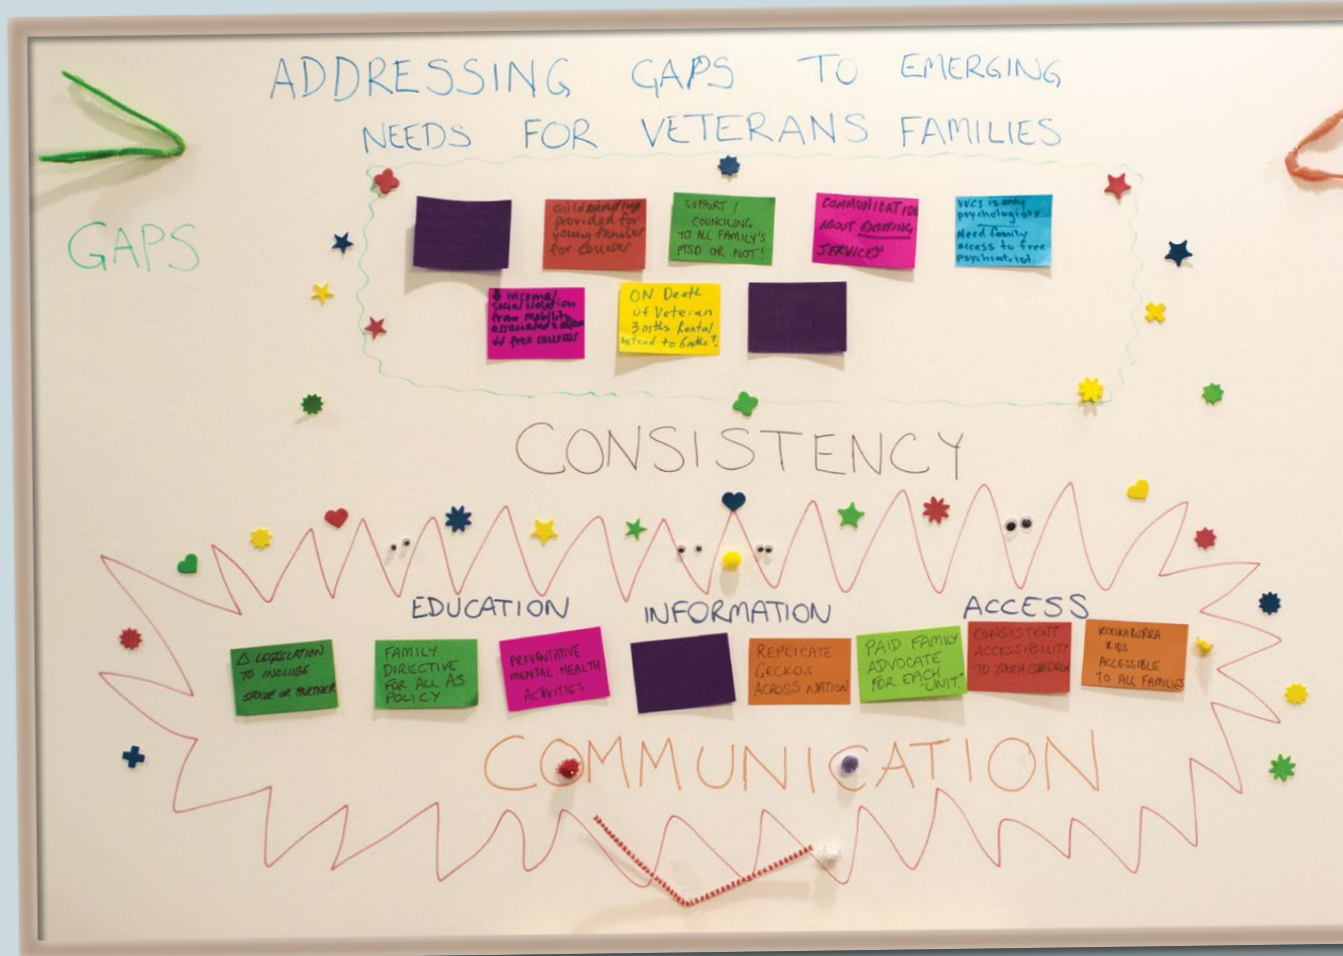 ADDRESSING GAPS TO EMERGING
NEEDS FOR VETERANS FAMILIES
GAPS
provided for
young families
for courses
SUPPORT /
COUNCILING
TO ALL FAMILY'S
PTSD OR NOT!
COMMUNICATION
ABOUT EXISTING
SERVICES
VVCS is only
psychologists
Need family
access to free
psychiatrist.
↓ income/
social isolation
from mobility
free courses
ON Death
of Veteran
3 mths Rental
extend to 6 mths?
CONSISTENCY
EDUCATION INFORMATION ACCESS
Δ LEGISLATION
TO INCLUDE
SPOUSE OR PARTNER
FAMILY
DIRECTIVE
FOR ALL AS
POLICY
PREVENTATIVE
MENTAL HEALTH
ACTIVITIES
REPLICATE
GECKOS
ACROSS NATION
PAID FAMILY
ADVOCATE
FOR EACH
"UNIT."
CONSISTENT
ACCESSIBILITY
TO YOUTH
KOOKABURRA
KIDS
ACCESSIBLE
TO ALL FAMILIES
COMMUNICATION